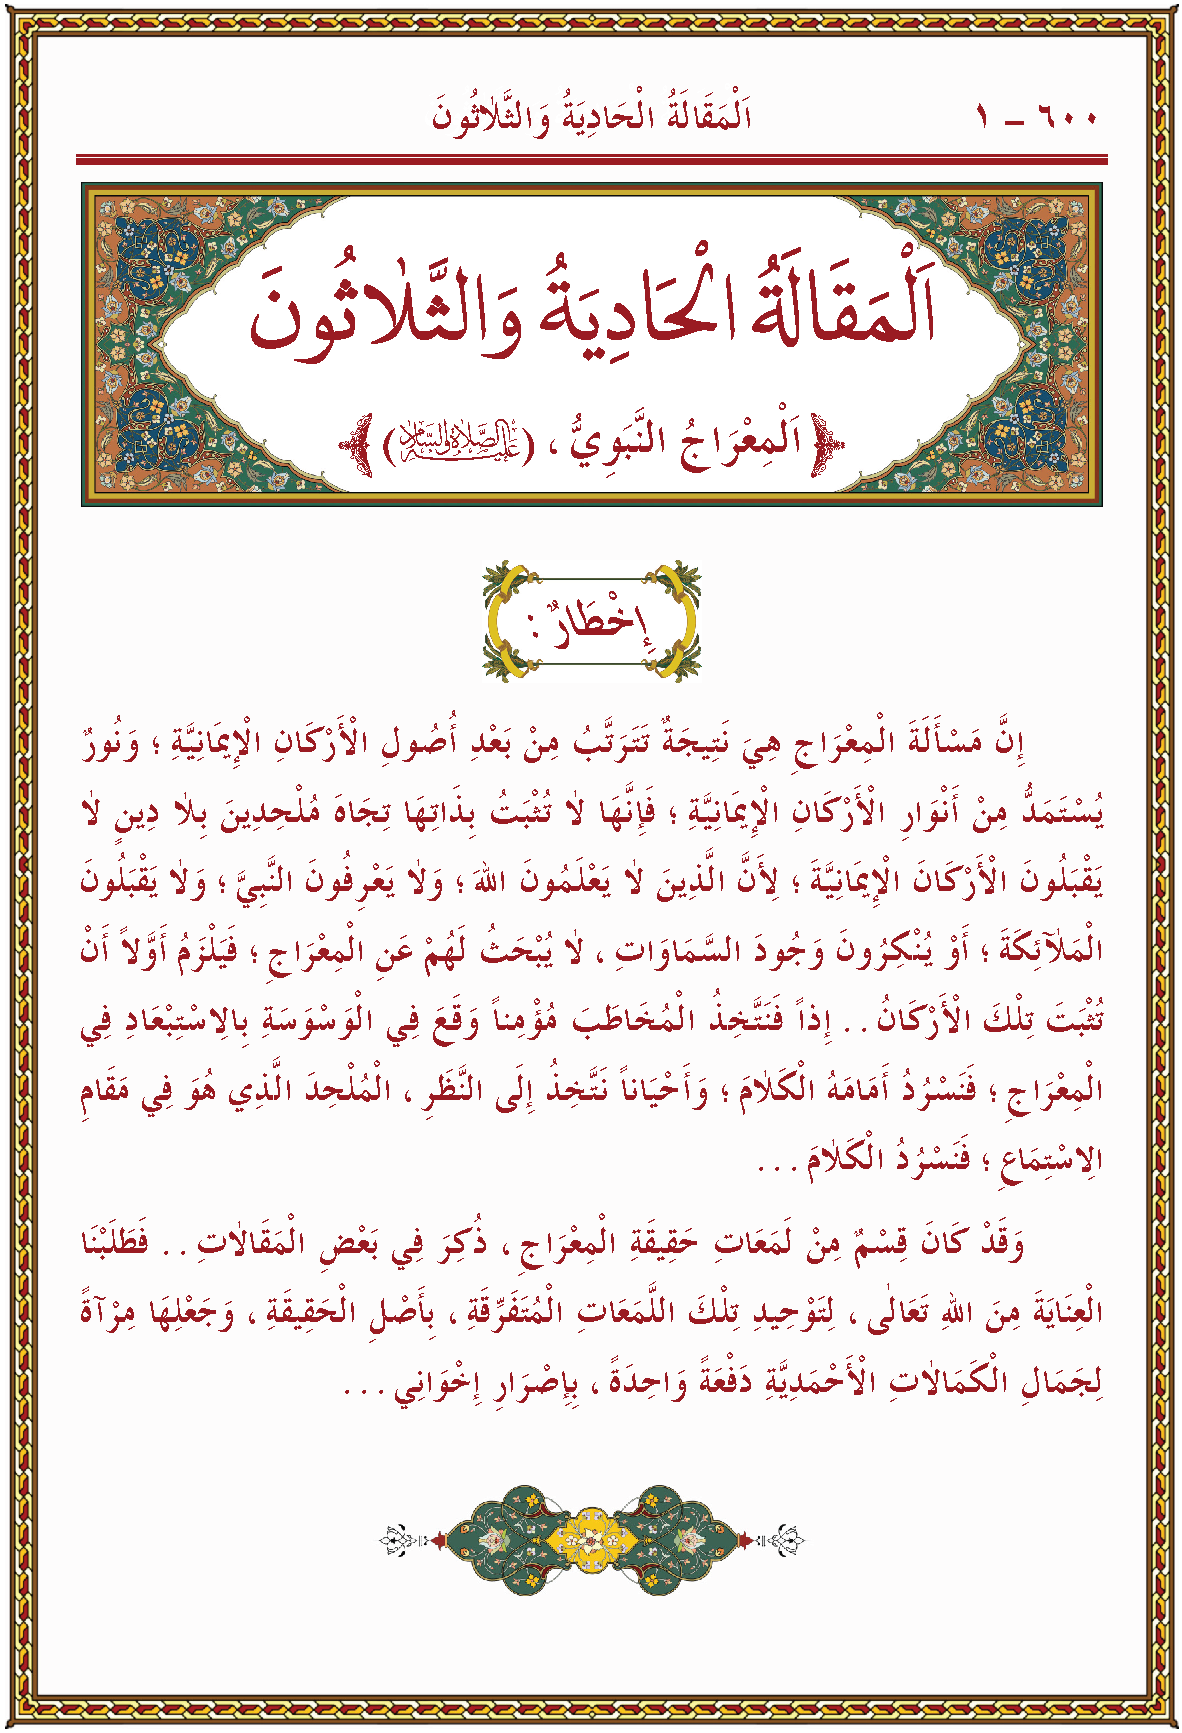 ٦٠٠ – ١
اَلْمَقَالَةُ الْحَادِيَةُ وَالثَّلاٰثُونَ
اَلْمَقَالَةُ الْحَادِيَةُ وَالثَّلاٰثُونَ
اَلْمِعْرَاجُ النَّبَوِيُّ ، (عَلَيْهِ الصَّلاَةُ وَالسَّلاَمُ)
إِخْطَارٌ :
إِنَّ مَسْأَلَةَ الْمِعْرَاجِ هِيَ نَتِيجَةٌ تَتَرَتَّبُ مِنْ بَعْدِ أُصُولِ الْأَرْكَانِ الْإِيمَانِيَّةِ ؛ وَنُورٌ
يُسْتَمَدُّ مِنْ أَنْوَارِ الْأَرْكَانِ الْإِيمَانِيَّةِ ؛ فَإِنَّهَا لاٰ تُثْبَتُ بِذَاتِهَا تِجَاهَ مُلْحِدِينَ بِلاٰ دِينٍ لاٰ
يَقْبَلُونَ الْأَرْكَانَ الْإِيمَانِيَّةَ ؛ لِأَنَّ الَّذِينَ لاٰ يَعْلَمُونَ اللهَ ؛ وَلاٰ يَعْرِفُونَ النَّبِيَّ ؛ وَلاٰ يَقْبَلُونَ
الْمَلاٰئِكَةَ ؛ أَوْ يُنْكِرُونَ وُجُودَ السَّمَاوَاتِ ، لاٰ يُبْحَثُ لَهُمْ عَنِ الْمِعْرَاجِ ؛ فَيَلْزَمُ أَوَّلاً أَنْ
تُثْبَتَ تِلْكَ الْأَرْكَانُ . . إِذاً فَنَتَّخِذُ الْمُخَاطَبَ مُؤْمِناً وَقَعَ فِي الْوَسْوَسَةِ بِالِاسْتِبْعَادِ فِي
الْمِعْرَاجِ ؛ فَنَسْرُدُ أَمَامَهُ الْكَلاٰمَ ؛ وَأَحْيَاناً نَتَّخِذُ إِلَى النَّظَرِ ، الْمُلْحِدَ الَّذِي هُوَ فِي مَقَامِ
الِاسْتِمَاعِ ؛ فَنَسْرُدُ الْكَلاٰمَ . . .
وَقَدْ كَانَ قِسْمٌ مِنْ لَمَعَاتِ حَقِيقَةِ الْمِعْرَاجِ ، ذُكِرَ فِي بَعْضِ الْمَقَالاٰتِ . . فَطَلَبْنَا
الْعِنَايَةَ مِنَ اللهِ تَعَالٰى ، لِتَوْحِيدِ تِلْكَ اللَّمَعَاتِ الْمُتَفَرِّقَةِ ، بِأَصْلِ الْحَقِيقَةِ ، وَجَعْلِهَا مِرْآةً
لِجَمَالِ الْكَمَالاٰتِ الْأَحْمَدِيَّةِ دَفْعَةً وَاحِدَةً ، بِإِصْرَارِ إِخْوَانِي . . .